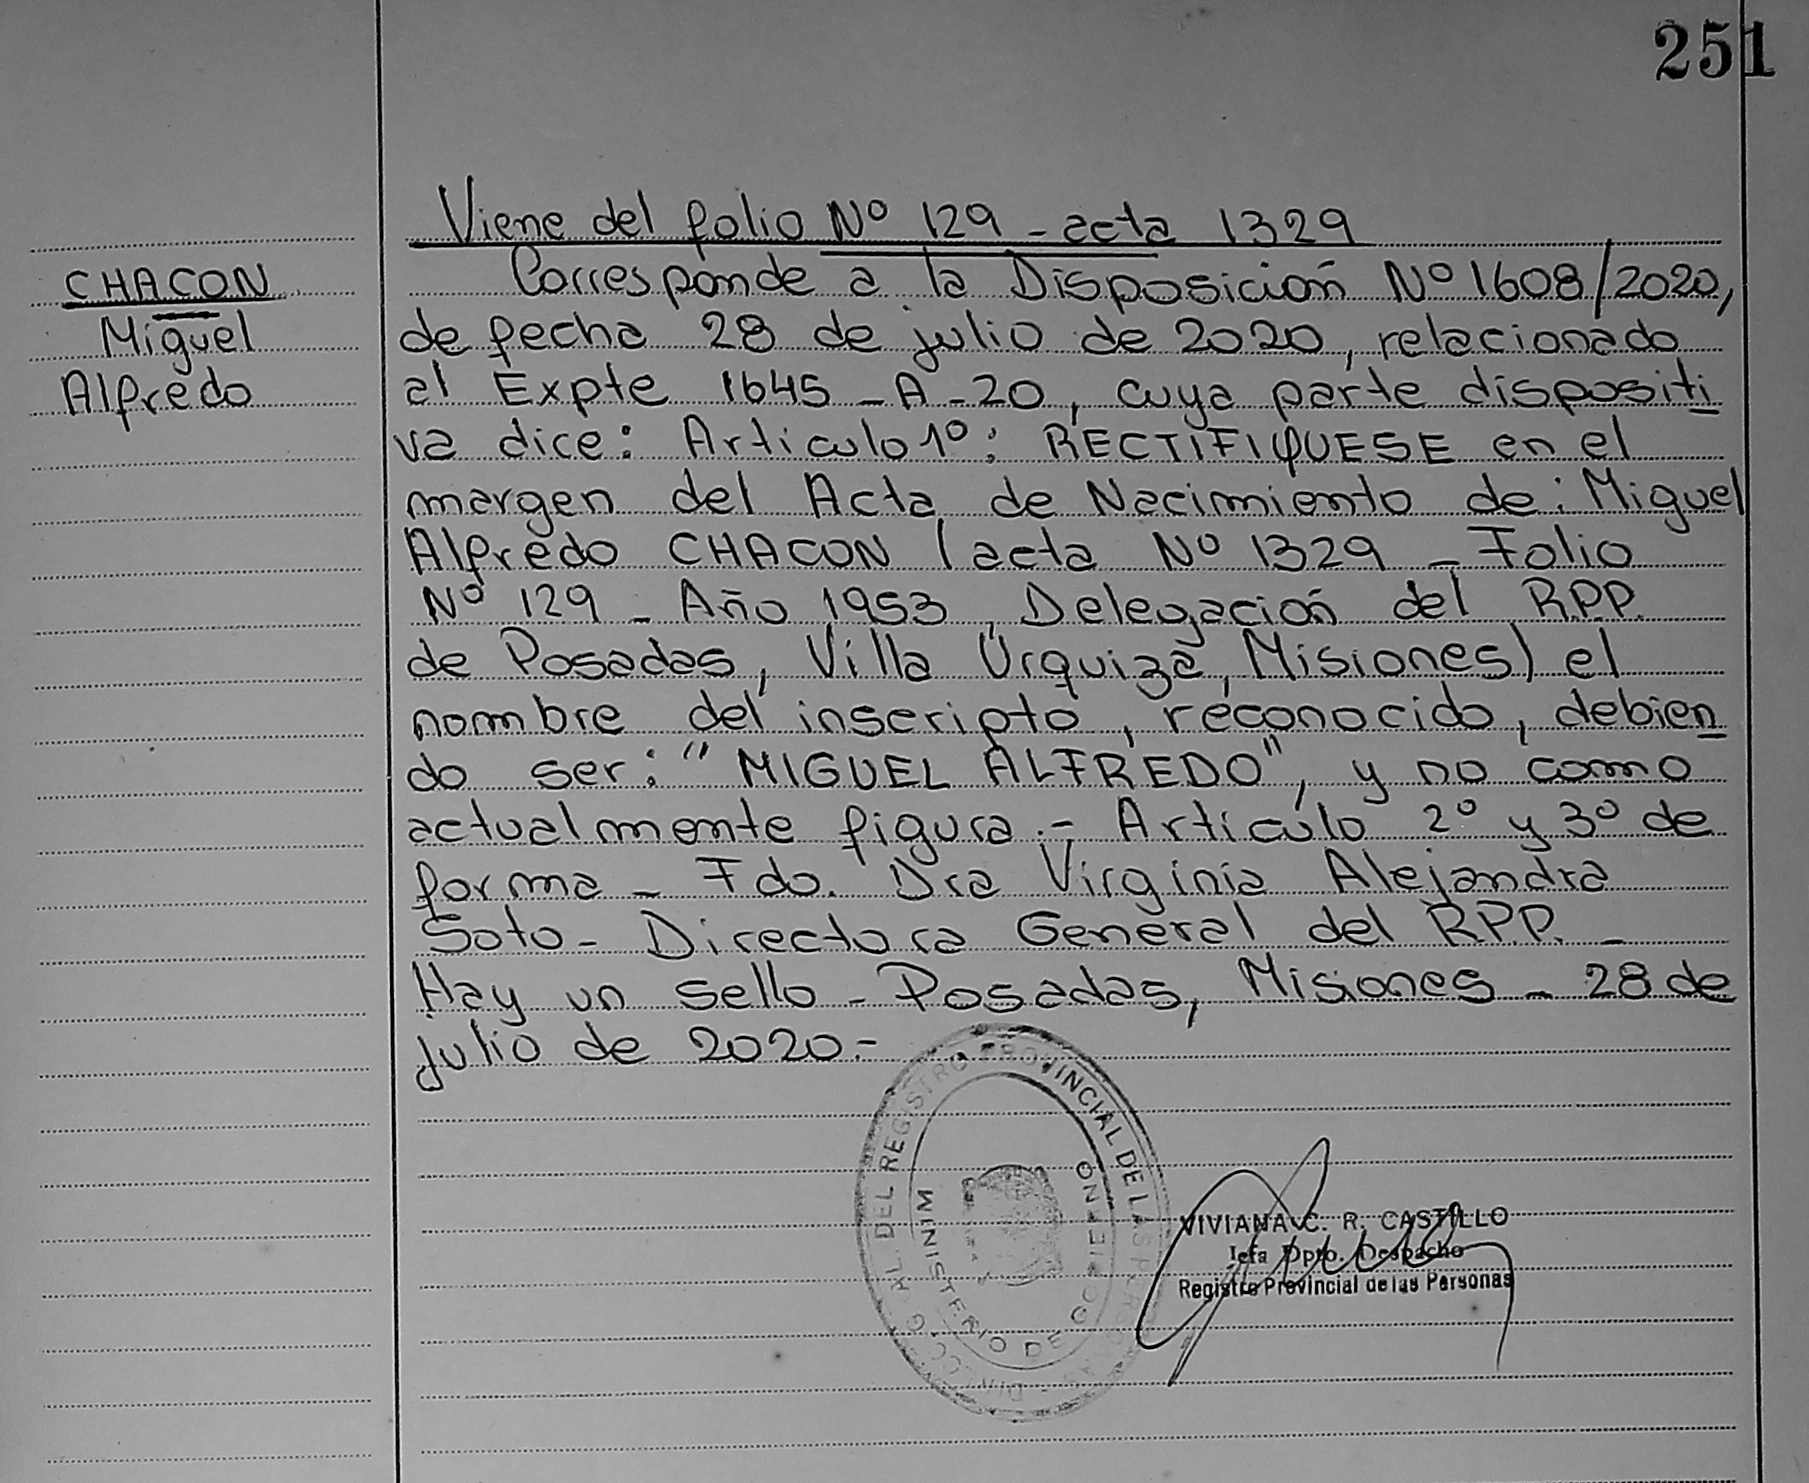 251
Viene del folio Nº 129 - acta 1329
CHACON
Miguel
Alfredo
Corresponde a la Disposición Nº 1608/2020,
de fecha 28 de julio de 2020, relacionado
al Expte 1645 - A - 20, cuya parte dispositi
va dice: Articulo 1º: RECTIFIQUESE en el
margen del Acta de Nacimiento de: Miguel
Alfredo CHACON (acta Nº 1329 - Folio
Nº 129 - Año 1953, Delegación del R.P.P.
de Posadas, Villa Urquiza, Misiones) el
nombre del inscripto, reconocido, debien
do ser: "MIGUEL ALFREDO", y no como
actualmente figura.- Articulo 2º y 3º de
forma - Fdo. Dra Virginia Alejandra
Soto - Directora General del R.P.P. -
Hay un sello - Posadas, Misiones - 28 de
julio de 2020.-
DIRECC. GRAL. DEL REGISTRO PROVINCIAL DE LAS PERSONAS
MINISTERIO DE GOBIERNO
VIVIANA C. R. CASTILLO
Jefa Dpto. Despacho
Registro Provincial de las Personas